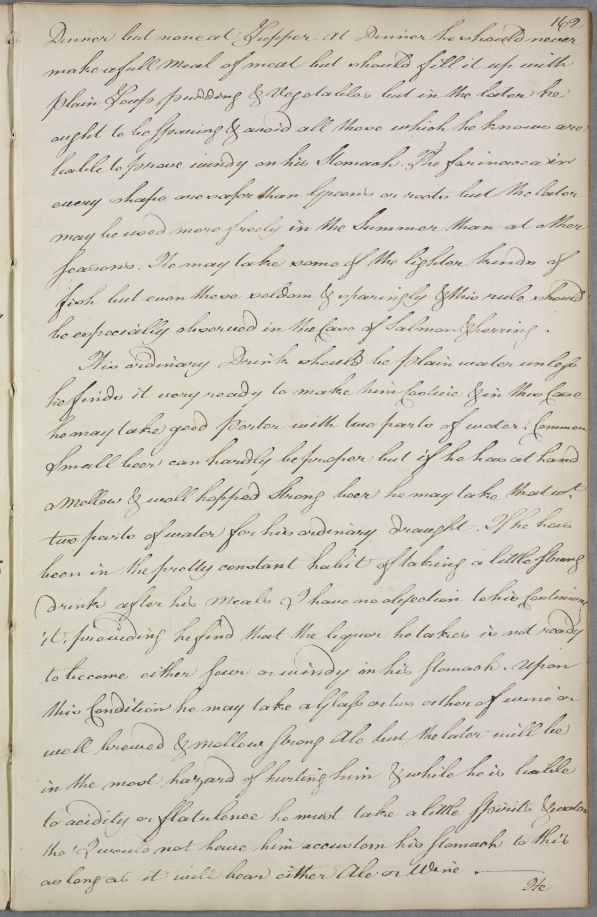 162
Dinner but none at Supper. At Dinner he should never
make a full Meal of meat but should fill it up with
plain Soup, pudding & Vegetables but in the later he
ought to be Sparing & avoid all those which he knows are
liable to prove windy on his Stomach. The farinacea in
every shape are safer than Greens or roots but the later
may be used more freely in the Summer than at other
Seasons. He may take some of the lighter kinds of
fish but even these seldom & sparingly & this rule should
be especially observed in the Case of Salmon & herring.
His ordinary Drink should be plain water unless
he finds it very ready to make him Costive & in this Case
he may take good Porter with two parts of water. Common
Small beer can hardly be proper but if he has at hand
a Mellow & well hopped Strong beer he may take that wt.
two parts of water for his ordinary draught. If he has
been in the pretty constant habit of taking a little Strong
drink after his Meals I have no objection to his Continuing
it, providing he find that the liquor he takes is not ready
to become either Sour or windy in his Stomach. Upon
this Condition he may take a Glass or two either of wine or
well brewed & mellow Strong Ale but the later will be
in the most hazard of hurting him & while he is liable
to acidity or flatulence he must take a little Spirits & water
tho' I would not have him accustom his Stomach to this
as long as it will bear either Ale or Wine.
He